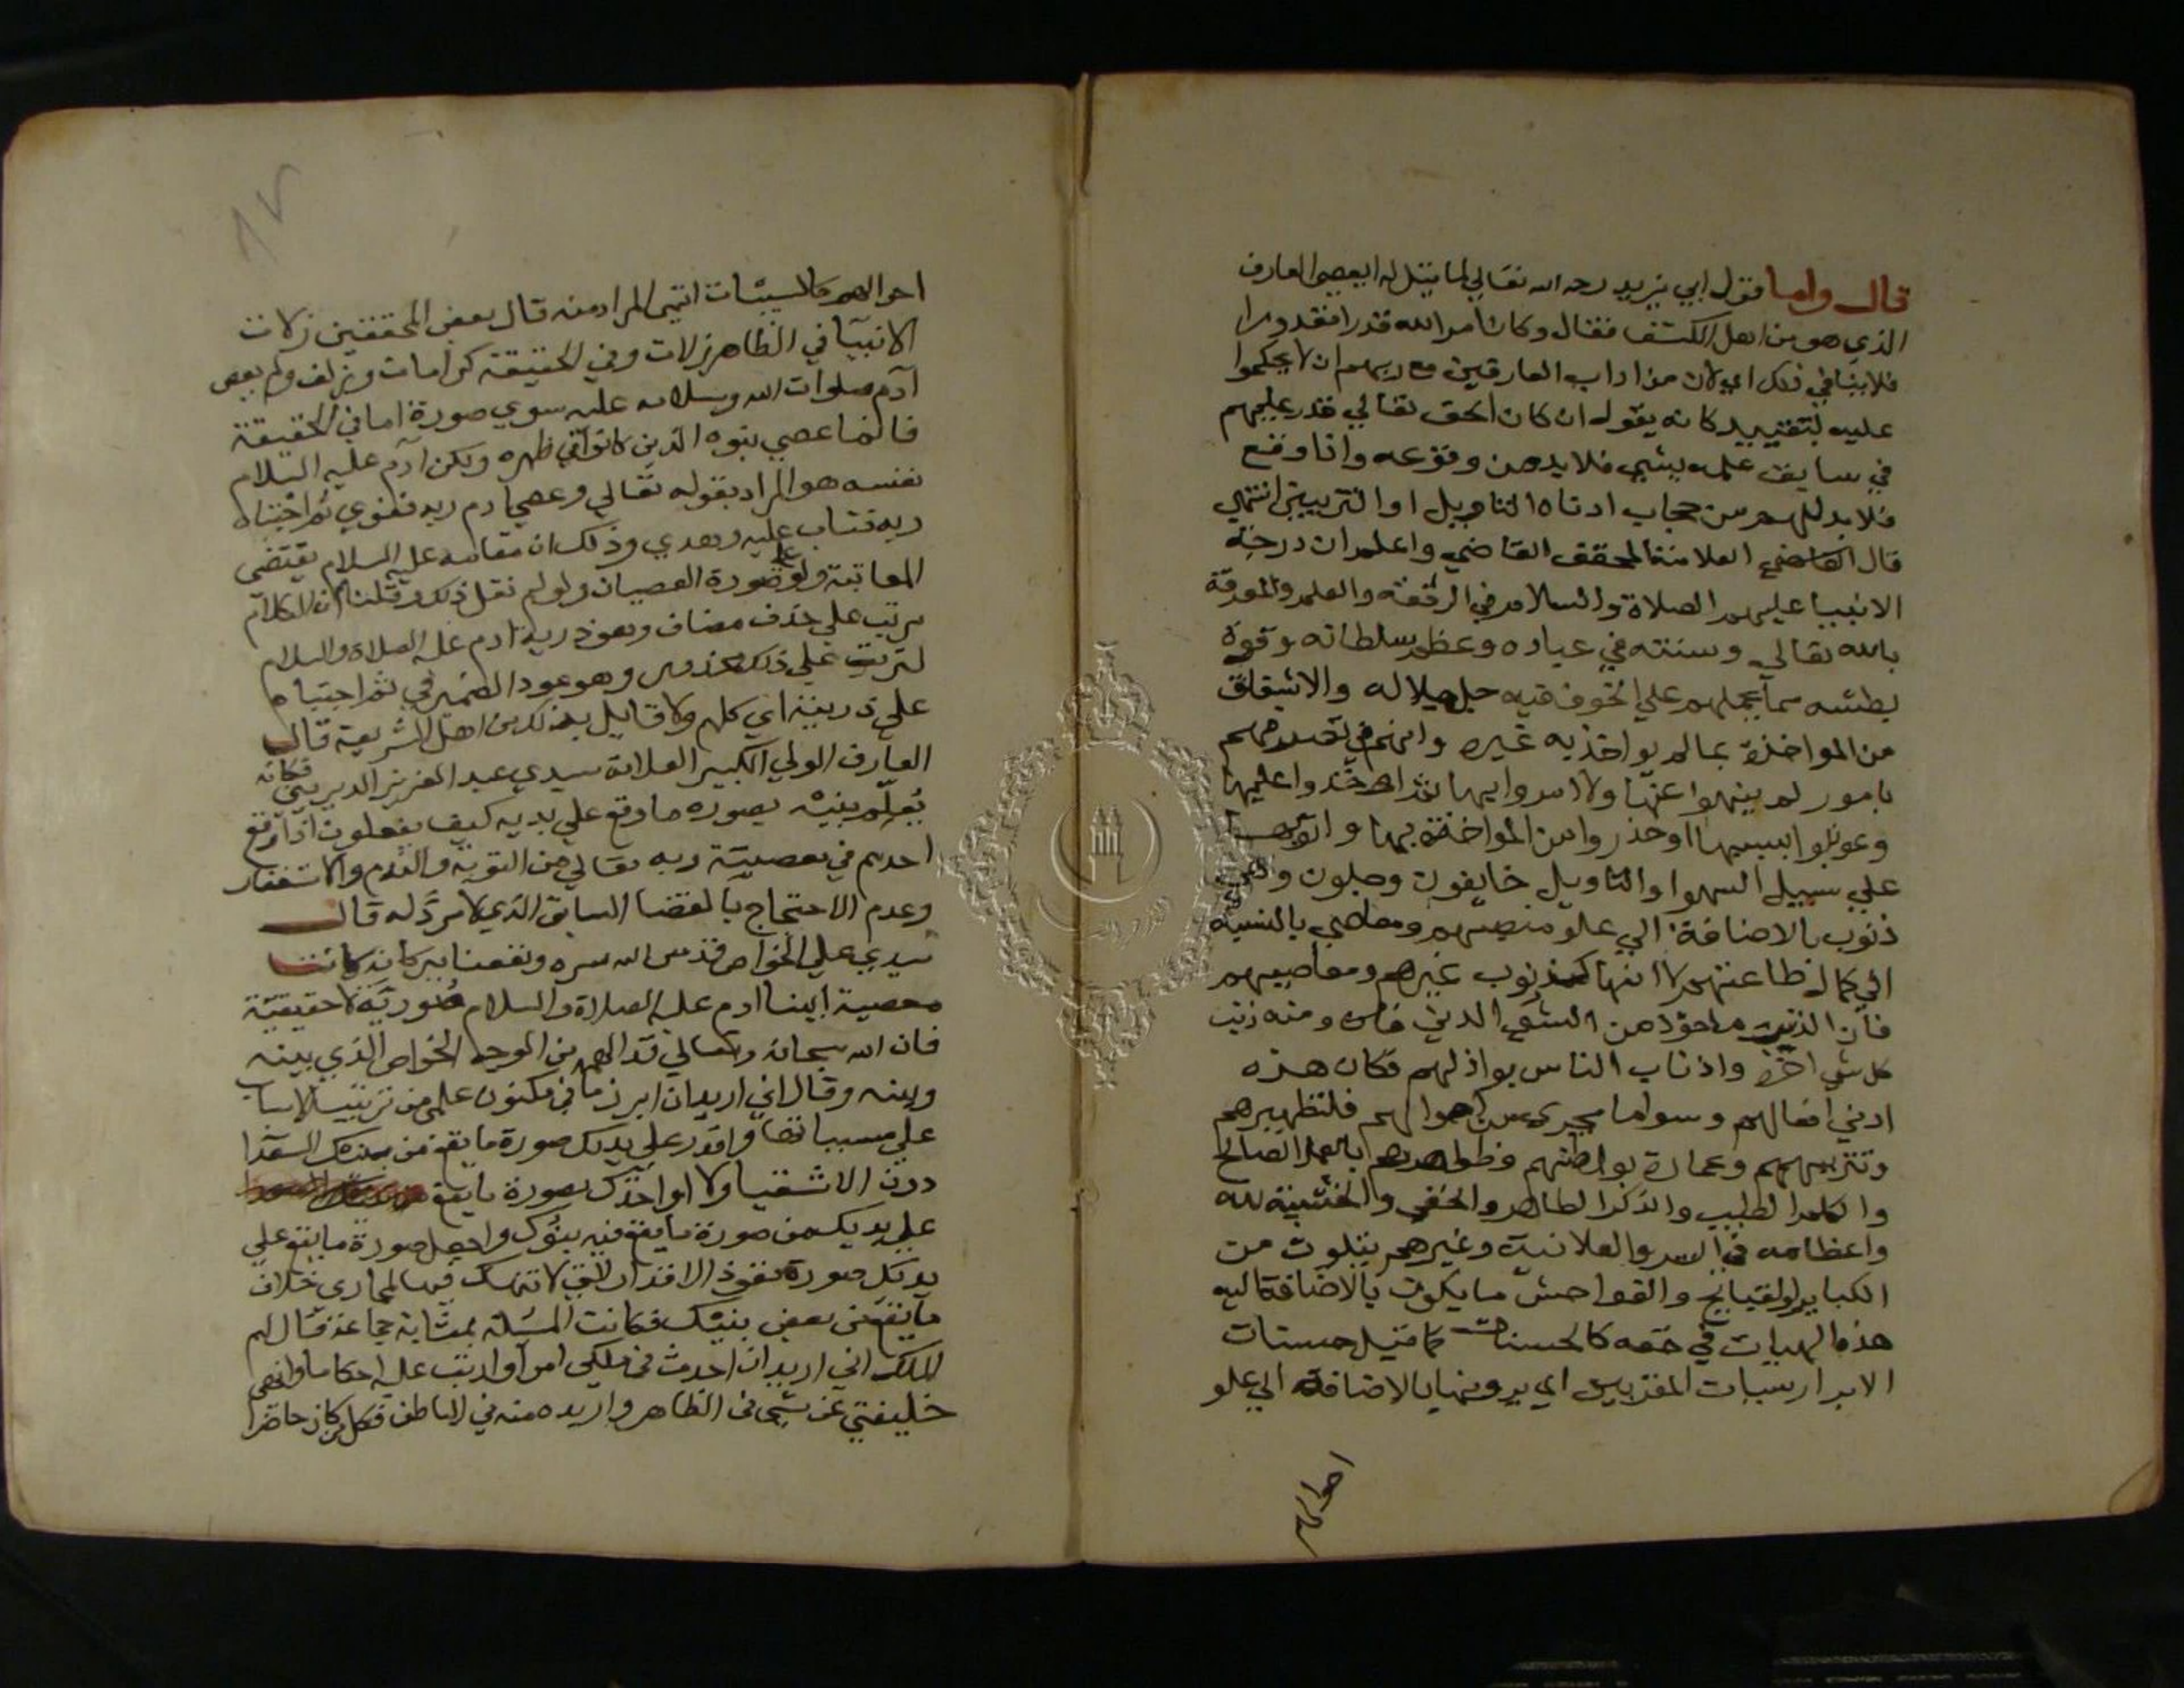 قال واما قول ابي يزيد رحمه الله تعالي لما قيل له ايعصي العارف
الذي هو من اهل الكشف فقال وكان امر الله قدرا مقدورا
فلا ينافي ذلك اي لان من اداب العارفين مع ربهم ان لا يحكموا
عليه بتقييد كانه يقول ان كان الحق تعالي قدر عليهم
في سابق علمه بشي فلا بد من وقوعه واذا وقع
فلا بد لهم من حجاب ادناه التاويل او التزيين انتهي
قال القاضي العلامة المحقق القاضي واعلم ان درجة
الانبيا عليهم الصلاة والسلام في الرفعة والعلم والمعرفة
بالله تعالي وسنته في عباده وعظم سلطانه وقوة
بطشه مما يحملهم علي الخوف منه جل جلاله والاشفاق
من المواخذة بمالم يواخذ به غيره وانهم في تصرفهم
بامور لم ينهوا عنها ولا امروا بها ثم اوخذوا عليها
وعوتبوا بسببها او حذروا من المواخذة بها واتوها
علي سبيل السهو او التاويل خايفون وجلون وهي
ذنوب بالاضافة الي علو منصبهم ومعاصي بالنسبة
الي كمال طاعتهم لا انها كذنوب غيرهم ومعاصيهم
فان الذنب ماخوذ من الشي الدني ومنه ذنب
كل شي اخره واذناب الناس رذالهم فكان هذه
ادني افعالهم وسوا ما يجري من احوالهم فلتطهيرهم
وتنزيههم وعمارة بواطنهم وظواهرهم بالعمل الصالح
والكلم الطيب والذكر الظاهر والخفي والخشية لله
واعظامه في السر والعلانية وغيرهم يتلوث من
الكباير والقبايح والفواحش ما يكون بالاضافة اليه
هذه الهيات في حقه كالحسنات كما قيل حسنات
الابرار سيات المقربين اي يرونها بالاضافة الي علو
احوالهم
١٢
احوالهم كالسيئات انتهي المراد منه قال بعض المحققين زلات
الانبيا في الظاهر زلات وفي الحقيقة كرامات وزلف ولم يعص
آدم صلوات الله وسلامه عليه سوي صورة اما في الحقيقة
فانما عصي بنوه الذين كانوا في ظهره ولكن آدم عليه السلام
نفسه هو المراد بقوله تعالي وعصي ادم ربه فغوي ثم اجتباه
ربه فتاب عليه وهدي وذلك ان مقامه عليه السلام يقتضي
المعاتبة ولو علي صورة العصيان ولو لم نقل ذلك وقلنا ان الكلام
مرتب علي حذف مضاف وهو ذرية ادم عليه الصلاة والسلام
لترتب علي ذلك محذور وهو عود الضمير في ثم اجتباه
علي ذريته اي كلهم ولا قايل بذلك من اهل الشريعة قال
العارف الولي الكبير العلامة سيدي عبد العزيز الديريني فكانه
يُعلّم بنيه بصورة ما وقع علي يديه كيف يفعلون اذا وقع
احدهم في معصية ربه تعالي من التوبة والندم والاستغفار
وعدم الاحتجاج بالقضا السابق الذي لا مرد له قال
سيدي علي الخواص قدس الله سره ونفعنا ببركاته كانت
معصية ابينا ادم عليه الصلاة والسلام صُورية لا حقيقية
فان الله سبحانه وتعالي قد الهمه من الوجه الخواص الذي بينه
وبينه وقال اني اريد ان ابرز ما في مكنون علمي من ترتيب الاسباب
علي مسبباتها واقدر علي يديك صورة ما يقع من بنيك السعدا
دون الاشقيا ولا اواخذك بصورة ما يقع
علي يديك من صورة ما يقع فيه بنوك واجعل صورة ما يقع علي
يديك صورة نفوذ الاقدار التي لا تنهتك فيها المحارم خلاف
ما يقع من بعض بنيك فكانت المسئلة بمثابة جماعة قال لهم
الملك اني اريد ان احدث في ملكي امرا وارتب عليه احكاما وانهي
خليفتي عن شي في الظاهر واريده منه في الباطن فكل من كان حاضرا